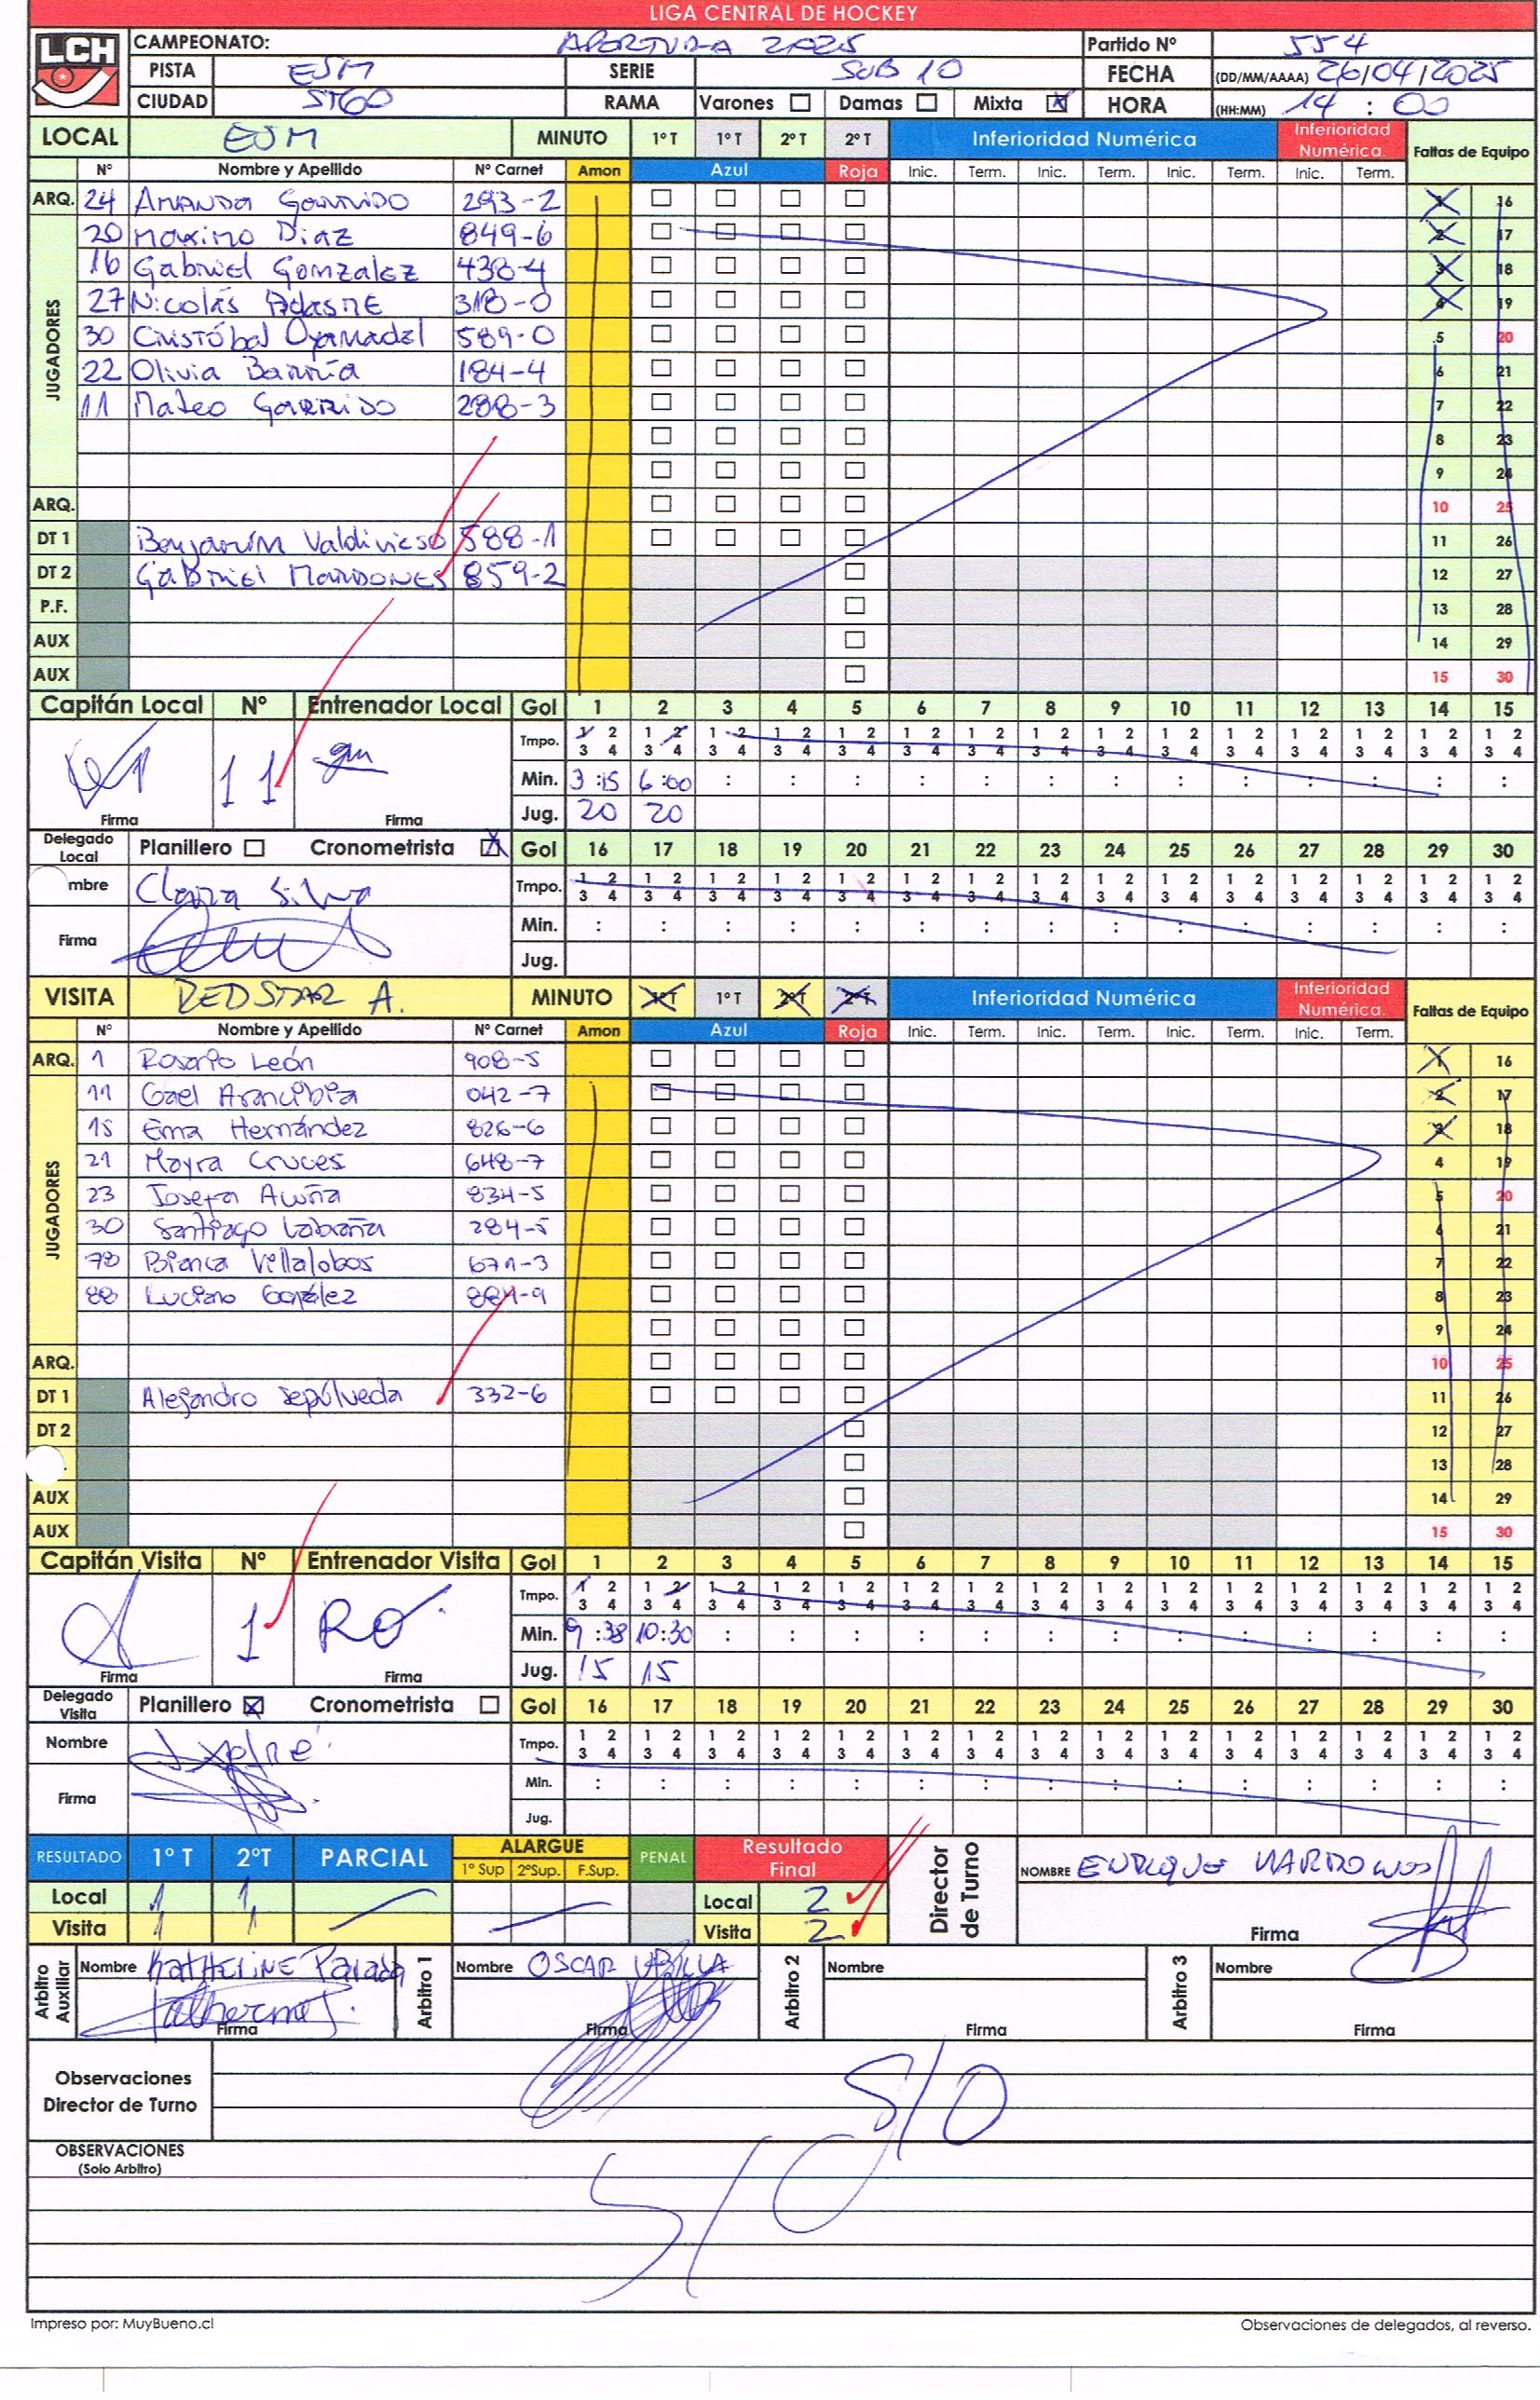 LIGA CENTRAL DE HOCKEY
LCH
CAMPEONATO: APERTURA 2025 Partido Nº 554
PISTA ESM SERIE SUB 10 FECHA (DD/MM/AAAA) 26/04/2025
CIUDAD STGO RAMA Varones Damas Mixta X HORA (HH:MM) 14 : 00
LOCAL ESM MINUTO 1º T 1º T 2º T 2º T Inferioridad Numérica Inferioridad Numérica. Faltas de Equipo
Nº Nombre y Apellido Nº Carnet Amon Azul Roja Inic. Term. Inic. Term. Inic. Term. Inic. Term.
ARQ. 24 Amanda Garrido 293-2 1 16
JUGADORES
20 Maximo Diaz 849-6 2 17
16 Gabriel Gonzalez 438-4 3 18
27 Nicolás Adasme 318-0 4 19
30 Cristóbal Oyamadel 589-0 5 20
22 Olivia Barría 184-4 6 21
11 Mateo Garrido 288-3 7 22
8 23
9 24
ARQ. 10 25
DT 1 Benjamín Valdivieso 588-1 11 26
DT 2 Gabriel Mardones 859-2 12 27
P.F. 13 28
AUX 14 29
AUX 15 30
Capitán Local Nº Entrenador Local Gol 1 2 3 4 5 6 7 8 9 10 11 12 13 14 15
Tmpo. 1 2 1 2 1 2 1 2 1 2 1 2 1 2 1 2 1 2 1 2 1 2 1 2 1 2 1 2 1 2
3 4 3 4 3 4 3 4 3 4 3 4 3 4 3 4 3 4 3 4 3 4 3 4 3 4 3 4 3 4
11 gm Min. 3 :15 6 :00 : : : : : : : : : : : : :
Firma Firma Jug. 20 20
Delegado Local Planillero Cronometrista X Gol 16 17 18 19 20 21 22 23 24 25 26 27 28 29 30
mbre Clara Silva Tmpo. 1 2 1 2 1 2 1 2 1 2 1 2 1 2 1 2 1 2 1 2 1 2 1 2 1 2 1 2 1 2
3 4 3 4 3 4 3 4 3 4 3 4 3 4 3 4 3 4 3 4 3 4 3 4 3 4 3 4 3 4
Firma Min. : : : : : : : : : : : : : : :
Jug.
VISITA RED STAR A. MINUTO 1º T 1º T 2º T 2º T Inferioridad Numérica Inferioridad Numérica. Faltas de Equipo
Nº Nombre y Apellido Nº Carnet Amon Azul Roja Inic. Term. Inic. Term. Inic. Term. Inic. Term.
ARQ. 1 Rosario León 908-5 1 16
JUGADORES
11 Gael Arancibia 042-7 2 17
15 Ema Hernández 826-6 3 18
21 Mayra Cruces 648-7 4 19
23 Josefa Acuña 834-5 5 20
30 Santiago Labraña 284-5 6 21
78 Bianca Villalobos 671-3 7 22
88 Luciano González 884-9 8 23
9 24
ARQ. 10 25
DT 1 Alejandro Sepúlveda 332-6 11 26
DT 2 12 27
13 28
AUX 14 29
AUX 15 30
Capitán Visita Nº Entrenador Visita Gol 1 2 3 4 5 6 7 8 9 10 11 12 13 14 15
Tmpo. 1 2 1 2 1 2 1 2 1 2 1 2 1 2 1 2 1 2 1 2 1 2 1 2 1 2 1 2 1 2
3 4 3 4 3 4 3 4 3 4 3 4 3 4 3 4 3 4 3 4 3 4 3 4 3 4 3 4 3 4
1 Min. 9 :38 10:30 : : : : : : : : : : : : :
Firma Firma Jug. 15 15
Delegado Visita Planillero X Cronometrista Gol 16 17 18 19 20 21 22 23 24 25 26 27 28 29 30
Nombre Tmpo. 1 2 1 2 1 2 1 2 1 2 1 2 1 2 1 2 1 2 1 2 1 2 1 2 1 2 1 2 1 2
3 4 3 4 3 4 3 4 3 4 3 4 3 4 3 4 3 4 3 4 3 4 3 4 3 4 3 4 3 4
Firma Min. : : : : : : : : : : : : : : :
Jug.
RESULTADO 1º T 2ºT PARCIAL ALARGUE 1º Sup 2ºSup. F.Sup. PENAL Resultado Final Director de Turno NOMBRE ENRIQUE MARDONES
Local 1 1 Local 2
Visita 1 1 Visita 2 Firma
Arbitro Auxiliar Nombre KATHERINE Parada Arbitro 1 Nombre OSCAR Arbitro 2 Nombre Arbitro 3 Nombre
Firma Firma Firma Firma
Observaciones Director de Turno S/O
OBSERVACIONES
(Solo Arbitro)
S/O
Impreso por: MuyBueno.cl Observaciones de delegados, al reverso.